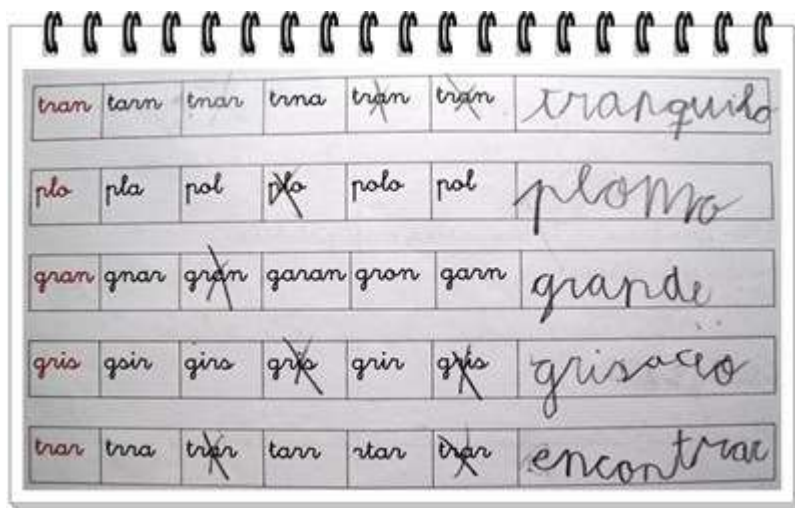 tran tarn tnar trna tran tran tranquilo
plo pla pol plo polo pol plomo
gran gnar gran garan gron garn grande
gris gsir girs gris grir gris grisaceo
trar trra trar tarr rtar trar encontrar